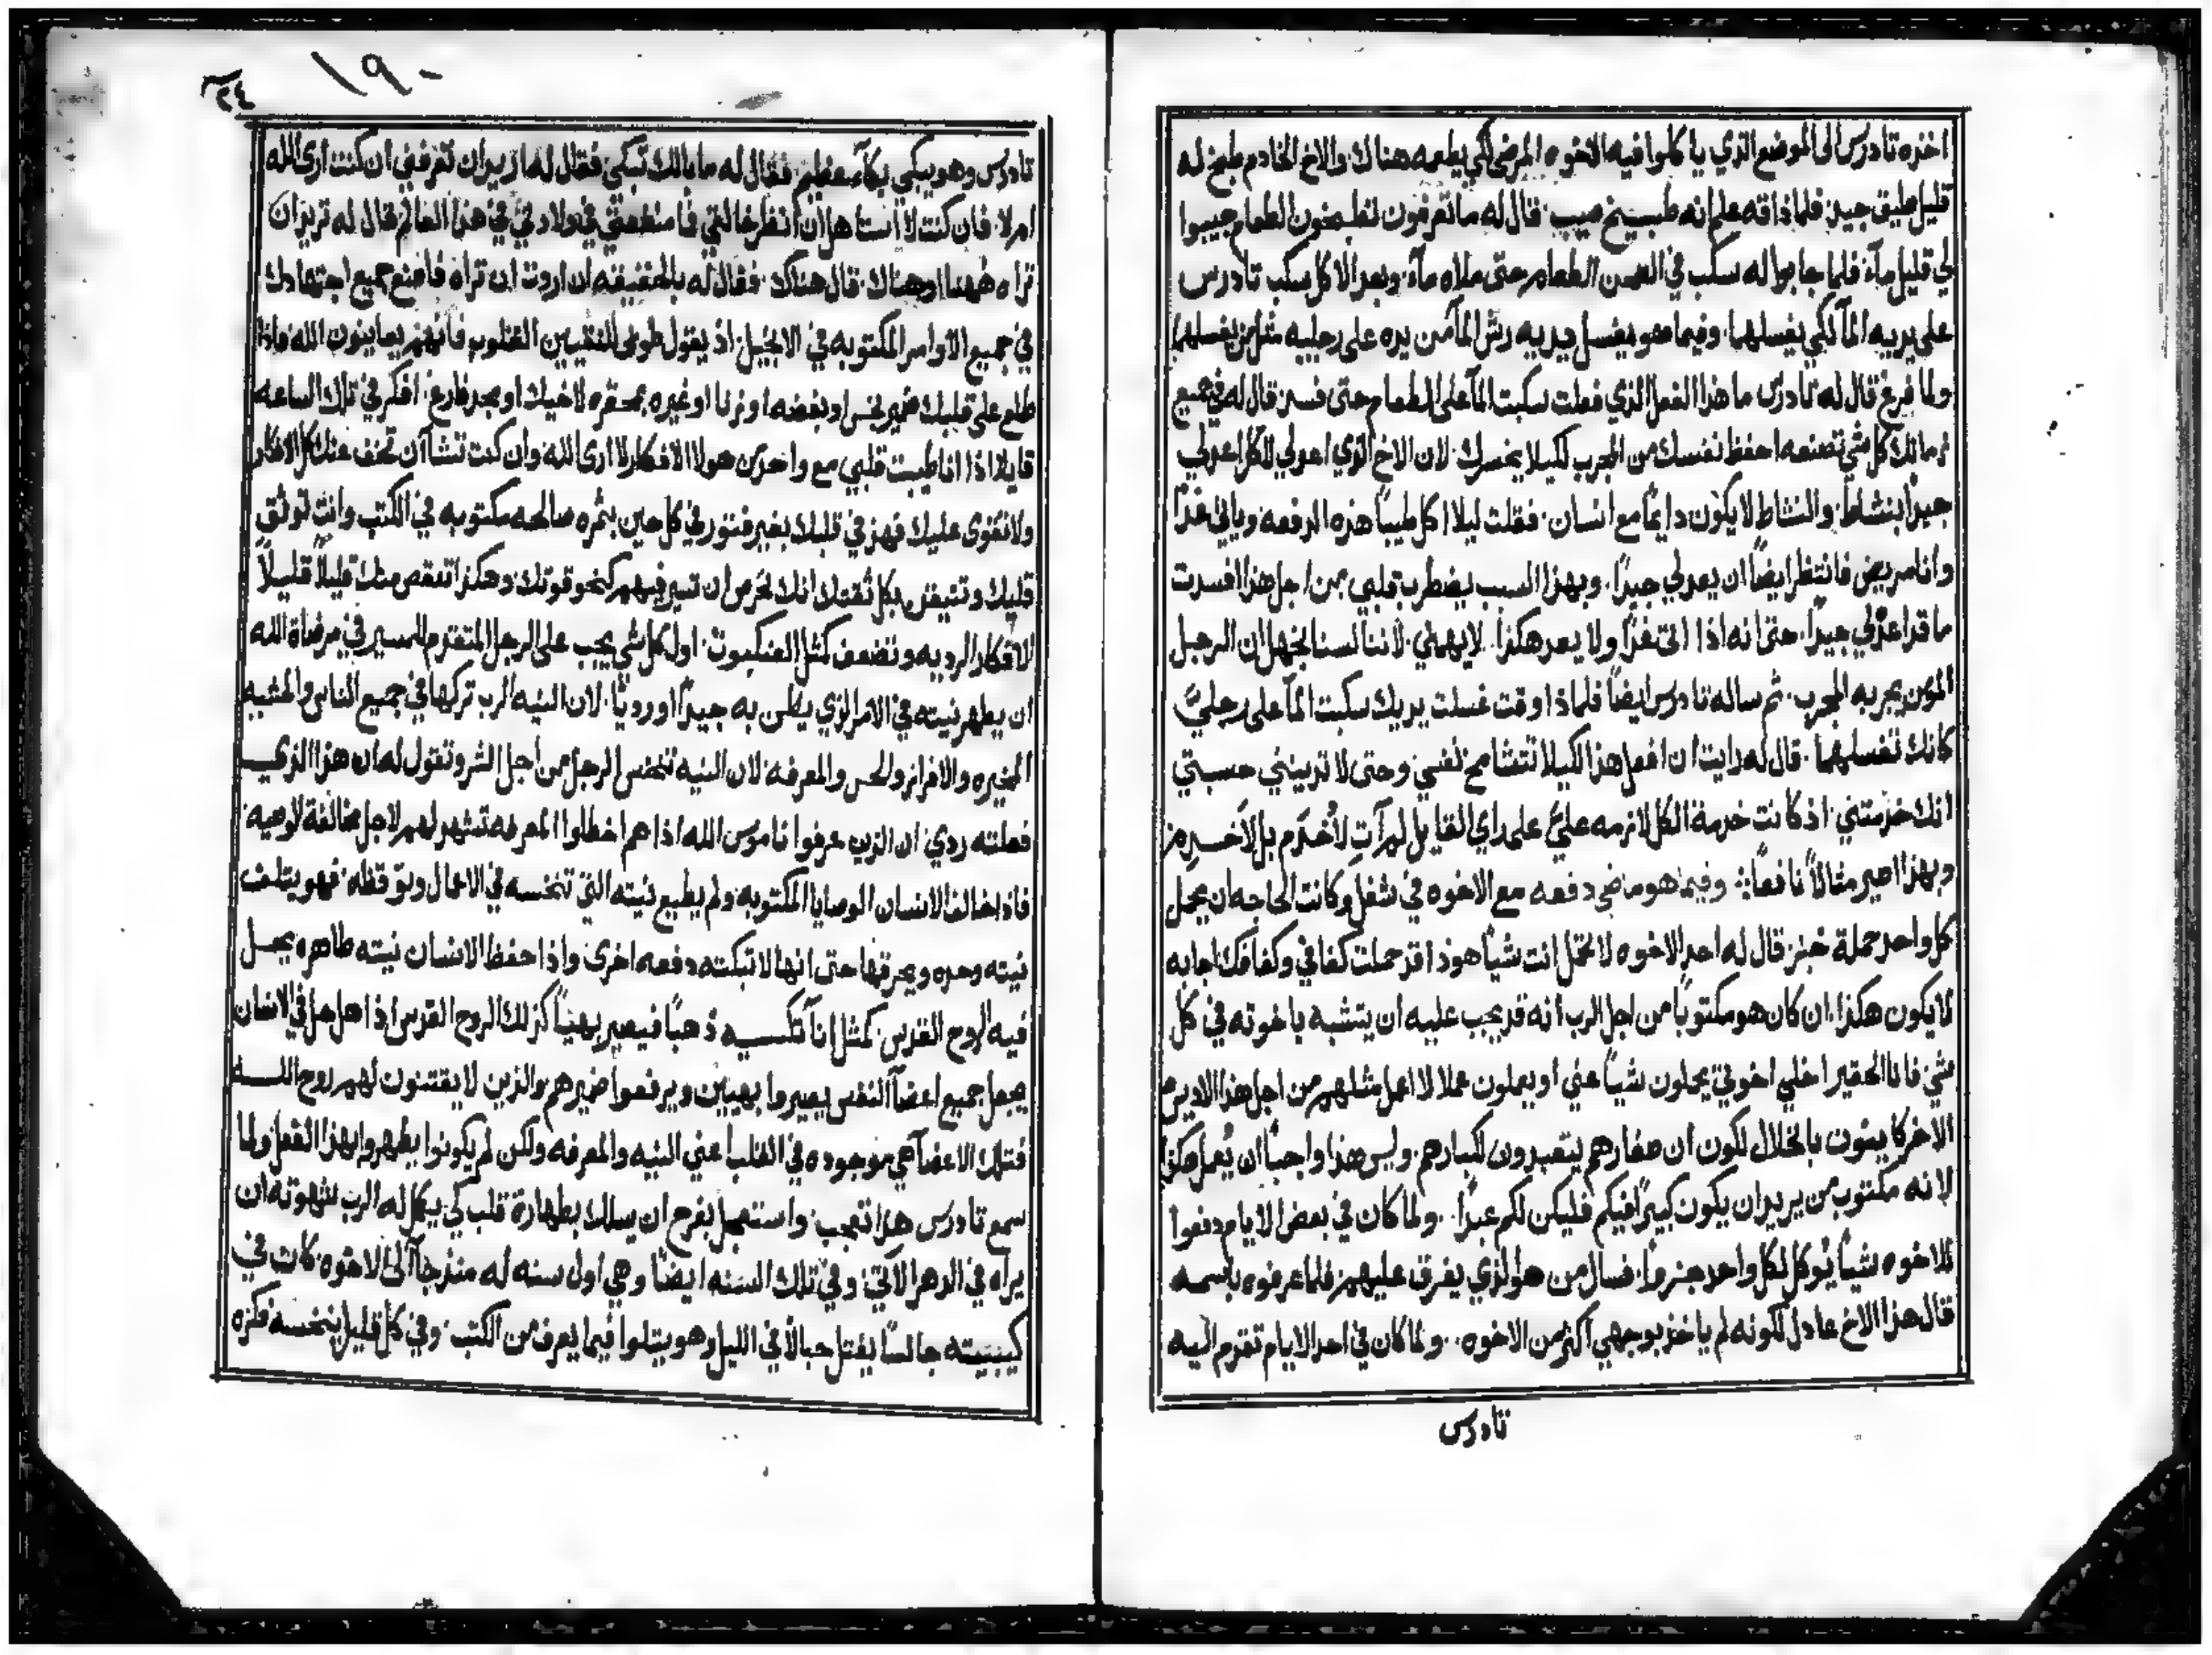 اخده تادرس الى الموضع الذي ياكلوا فيه الاخوه المرضى لكي يطعمه هناك والاخ الخادم طبخ له
قليل سليق جيد فلما ذاقه علم انه طبيخ طيب قال له ما تعرفون تطبخون الطعام جيبوا
لي قليل مآء فلما جابوا له سكب في الصحن الطعام حتى ملاه مآء وبعد الاكل سكب تادرس
على يديه المآ لكي يغسلهما وفيما هو يغسل يديه رش المآ من يده على رجليه مثل من يغسلهما
ولما فرغ قال له تادرس ما هذا الفعل الذي فعلت سكبت المآ على الطعام حتى فسد قال له في جميع
زمانك كل شي تصنعه احفظ نفسك من المجرب لكيلا يخسرك لان الاخ الذي اعد لي الاكل اعد لي
جيدًا بنشاط والنشاط لا يكون دايمًا مع انسان فقلت ليلا اكل طيبًا هذه الدفعه وياتي غدًا
وانا مريض فانتظر ايضًا ان يعد لي جيدًا وبهذا السبب يضطرب قلبي من اجل هذا افسدت
ما قد اعد لي جيدًا حتى انه اذا اتى غدًا ولا يعد هكذا لا يهمني لاننا لسنا نجهل ان الرجل
المومن يجربه المجرب ثم ساله تادرس ايضًا فلماذا وقت غسلت يديك سكبت المآ على رجليك
كانك تغسلهما قال له رايت ان افعل هذا لكيلا تتشامخ نفسي وحتى لا تدينني حسبتي
انك خدمتني اذ كانت خدمة الكل لازمه علي على راي القايل لم ات لأُخدم بل لأخدم
وبهذا اصير مثالاً نافعًا وفيما هو ماضي دفعه مع الاخوه في شغل وكانت الحاجه ان يحمل
كل واحد حملة خبز قال له احد الاخوه لا تحمل انت شيًا هوذا قد حملت كفافي وكفافك اجابه
لا يكون هكذا ان كان هو مكتوبًا من اجل الرب انه قد يجب عليه ان يتشبه باخوته في كل
شي فانا الحقير اخلي اخوتي يحملون شيًا عني او يعملون عملا لا اعمل مثلهم من اجل هذا الاديره
الاخر كاينون بانحلال لكون ان صغارهم يتعبدون لكبارهم وليس هذا واجبًا ان يُعمل هكذا
لانه مكتوب من يريد ان يكون كبيرًا فيكم فليكن لكم عبدًا ولما كان في بعض الايام دفعوا
للاخوه شيًا يُوكل لكل واحد جزءًا فسال من هو الذي يفرق عليهم فلما عرفوه باسمه
قال هذا الاخ عادل لكونه لم ياخذ بوجهي اكثر من الاخوه ولما كان في احد الايام تقدم اليه
تادرس
١٩٠
٢٤
تادرس وهو يبكي بكآ عظيم فقال له ما بالك تبكي فقال له اريدك ان تعرفني ان كنت ارى الله
ام لا فان كنت لا انا اهل ان انظر خالقي فما منفعتي في ولادتي في هذا العالم قال له تريد ان
تراه ههنا او هناك قال هناك فقال له بالحقيقه ان اردت ان تراه فاصنع جميع اجتهادك
في جميع الاوامر المكتوبه في الانجيل اذ يقول طوبى للنقيين القلوب فانهم يعاينون الله فاذا
طلع على قلبك ضمير نجس او بغضه او زنا او غيره بمحقره لاخيك او مجد فارغ افكر في تلك الساعه
قايلا اذا انا طيبت قلبي مع واحده من هولا الافكار لا ارى الله وان كنت تشآ ان تخف عنك كل الافكار
ولا تقوى عليك فهذ في قلبك بغير فتور في كل حين بثمره صالحه مكتوبه في الكتب وانت توثق
قلبك وتتيقن بكل ثقتك انك تحرص ان تسير فيهم كنحو قوتك وهكذا تنقص منك قليلاً قليلاً
الافكار الرديه وتضعف كمثل العنكبوت اول كل شي يجب على الرجل المتقدم للمسير في مرضاة الله
ان يطهر نيته في الامر الذي يظن به جيدًا او رديًا لان النيه الرب تركها في جميع الناس والمشيه
المخيره والافراز والحس والمعرفه لان النيه تنخس الرجل من اجل الشر وتقول له ان هذا الذي
فعلته ردي ان الذين عرفوا ناموس الله اذا هم اخطاوا المعرفه تشهد لهم لاجل مخالفة الوصيه
فاذا خالف الانسان الوصايا المكتوبه ولم يطيع نيته التي تنخسه في الاعمال وتوقظه فهو يتلف
نيته وحده ويحرقها حتى انها لا تبكته دفعه اخرى واذا حفظ الانسان نيته طاهره يحل
فيه الروح القدس كمثل انآ تكسيه ذهبًا فيصير بهيًا كذلك الروح القدس اذا هل هل في الانسان
يجعل جميع اعضآ النفس يصيروا بهيين ويرفعوا ضميرهم والذين لا يقتنون لهم روح الله
فتلك الاعضآ هي موجوده في القلب اعني النيه والمعرفه ولكن لم يكونوا يطهروا بهذا الفعل ولما
سمع تادرس هذا تعجب واستعجل بفرح ان يسلك بطهارة قلب كي يكمل له الرب شهوته ان
يراه في الدهر الاتي وفي تلك السنه ايضًا وهي اول سنه له منذ جآ الى الاخوه كان في
كيبيته جالسًا يفتل حبالاً في الليل وهو يتلوا فيما يعرف من الكتب وفي كل قليل ينخسه فكره